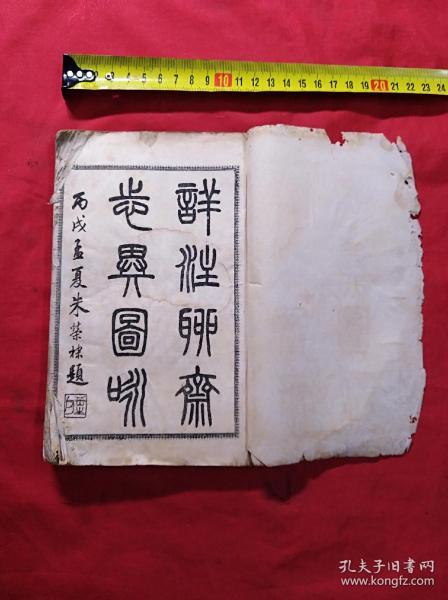 詳注聊齋
志異圖咏
丙戌孟夏朱榮棣題
1 2 3 4 5 6 7 8 9 10 11 12 13 14 15 16 17 18 19 20 21 22 23 24
孔夫子旧书网
www.kongfz.com